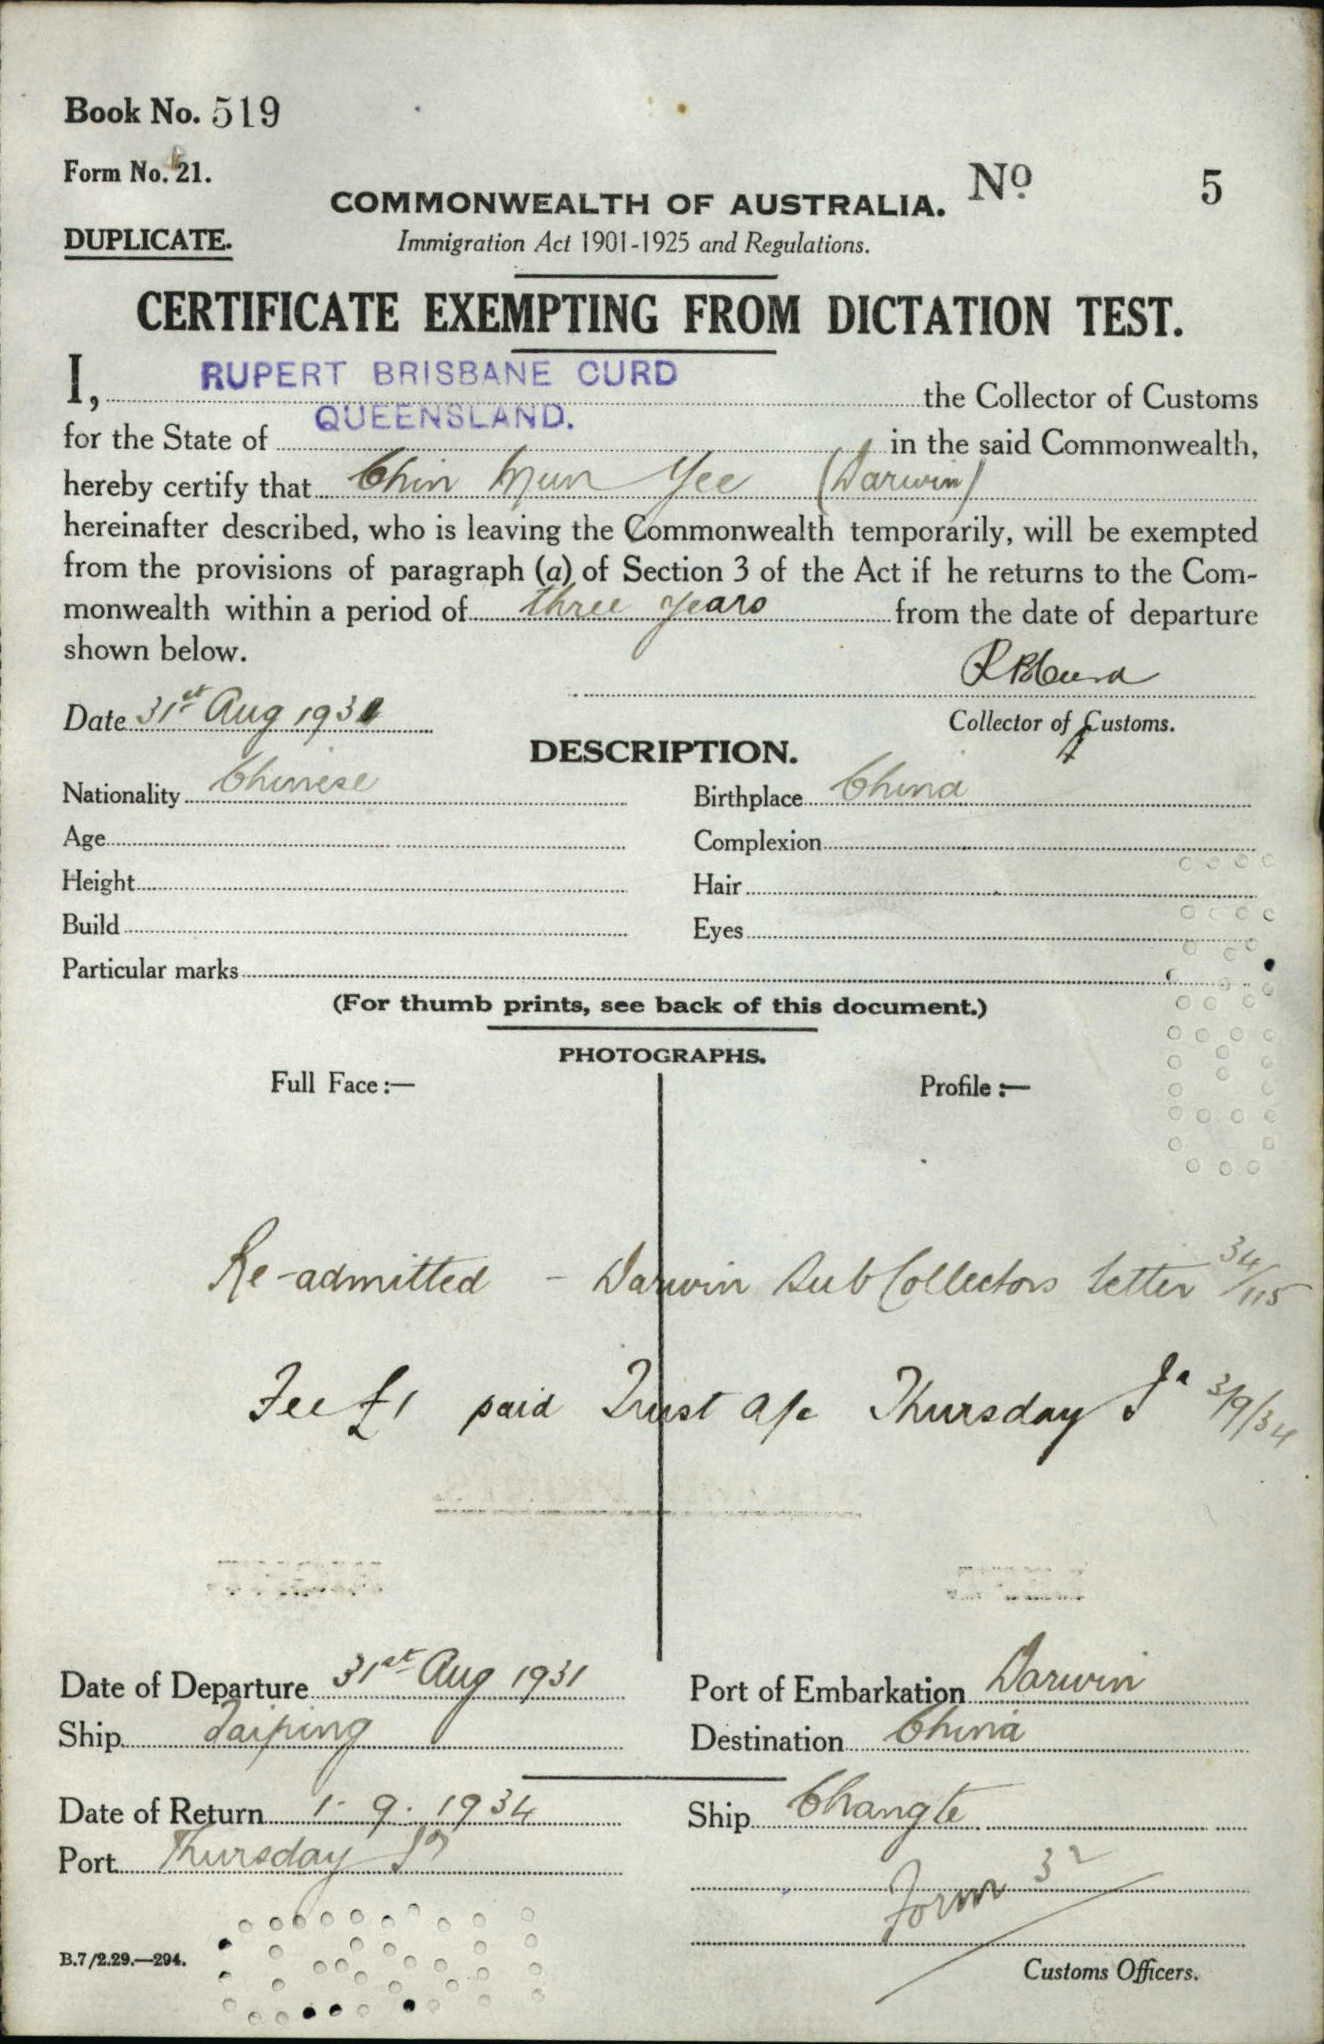 Book No. 519
Form No. 21.
COMMONWEALTH OF AUSTRALIA. No 5
DUPLICATE.
Immigration Act 1901-1925 and Regulations.
CERTIFICATE EXEMPTING FROM DICTATION TEST.
I, RUPERT BRISBANE CURD the Collector of Customs
for the State of QUEENSLAND. in the said Commonwealth,
hereby certify that Chin Mun Yee (Darwin)
hereinafter described, who is leaving the Commonwealth temporarily, will be exempted
from the provisions of paragraph (a) of Section 3 of the Act if he returns to the Com-
monwealth within a period of three years from the date of departure
shown below.
R B Curd
Date 31st Aug 1931
Collector of Customs.
DESCRIPTION.
Nationality Chinese Birthplace China
Age Complexion
Height Hair
Build Eyes
Particular marks
(For thumb prints, see back of this document.)
PHOTOGRAPHS.
Full Face:— Profile:—
Re-admitted - Darwin Sub Collectors letter 34/115
Fee £1 paid Trust a/c Thursday Is 3/9/34
Date of Departure 31st Aug 1931 Port of Embarkation Darwin
Ship Taiping Destination China
Date of Return 1. 9. 1934 Ship Changte
Port Thursday Is
Form 32
B.7/2.29.—294.
Customs Officers.